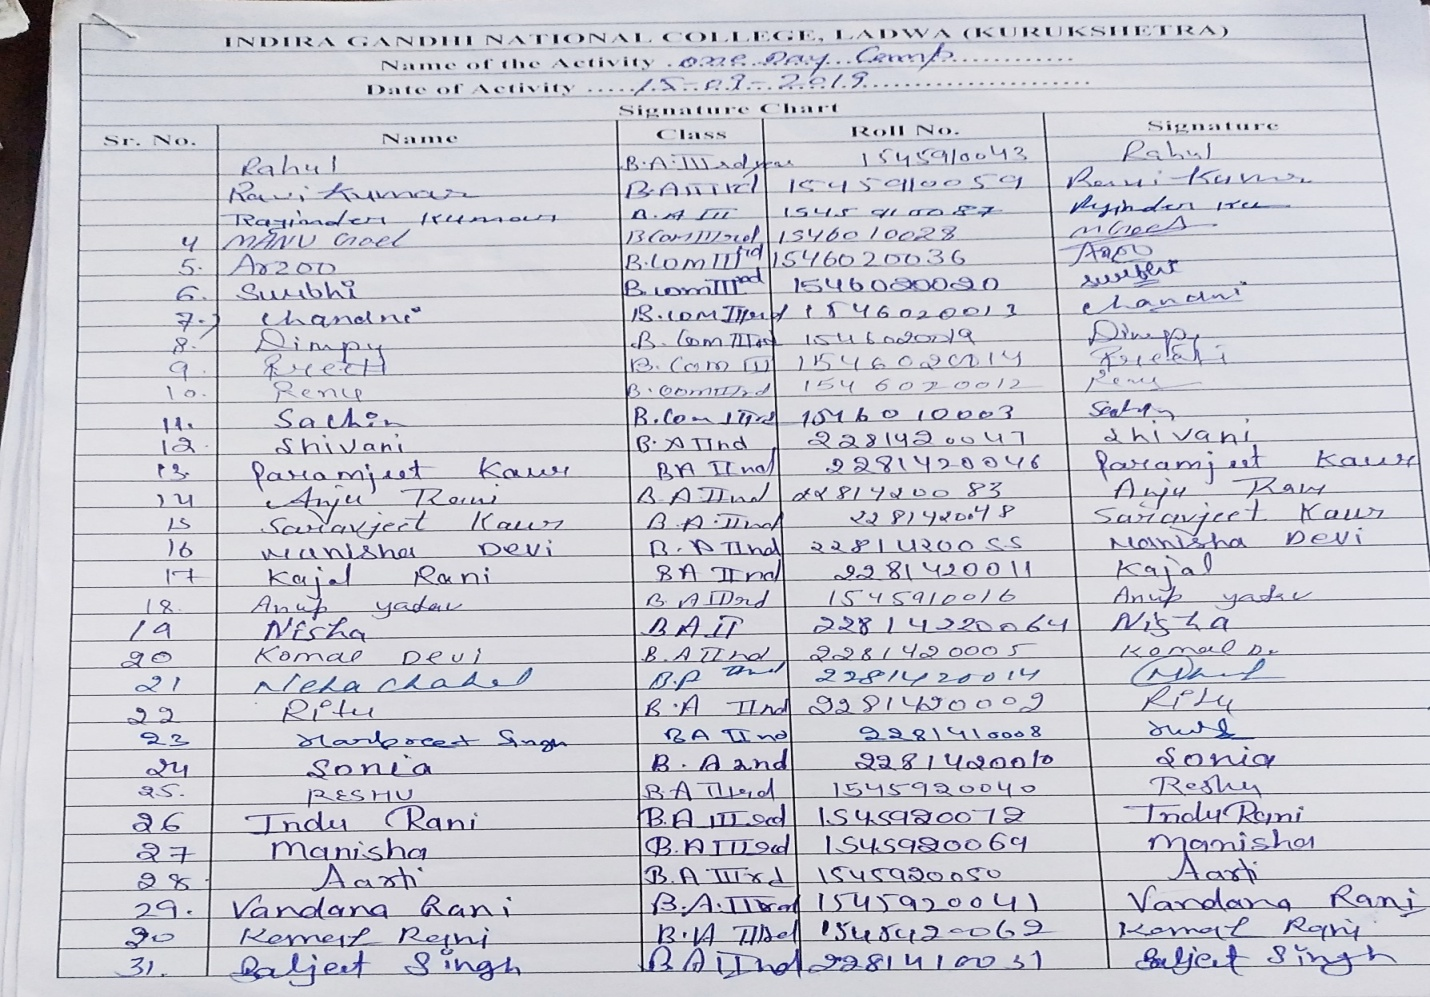 INDIRA GANDHI NATIONAL COLLEGE, LADWA (KURUKSHETRA)
Name of the Activity . One Day Camp
Date of Activity ..... 15-03-2019
Signature Chart
Sr. No. Name Class Roll No. Signature
Rahul B.A. IIIrd year 1545910043 Rahul
Ravi Kumar B.A IIIrd 1545910059 Ravi Kumar
Rajinder Kumar B.A III 1545910087 Rajinder
4 MANU Goel B.Com IIIrd 1546010028 MGoel
5. Arzoo B.Com IIIrd 1546020036 Arzoo
6. Surbhi B.com IIIrd 1546020020 Surbhi
7. Chandni B.Com IIIrd 1546020013 Chandni
8. Dimpy B.Com IIIrd 1546020019 Dimpy
9. Preeti B.Com III 1546020014 Preeti
10. Renu B.com IIIrd 1546020012 Renu
11. Sachin B.Com IIIrd 1546010003 Sachin
12. Shivani B.A IInd 2281420047 Shivani
13. Paramjeet Kaur BA IInd 2281420046 Paramjeet Kaur
14 Anju Rani B.A IInd 2281420083 Anju Rani
15 Saravjeet Kaur B.A. IInd 228142048 Saravjeet Kaur
16 Manisha Devi B.A IInd 2281420055 Manisha Devi
17 Kajal Rani BA IInd 2281420011 Kajal
18. Anup yadav B.A IIIrd 1545910016 Anup yadav
19 Nisha B A II 22814220064 Nisha
20 Komal Devi B.A IInd 2281420005 Komal De.
21 Neha chahal B.A IInd 2281420014
22 Ritu B.A IInd 2281420002 Ritu
23 Harpreet Singh BA IInd 2281410008
24 Sonia B.A 2nd 2281420010 Sonia
25. RESHU B.A IIIrd 1545920040 Reshu
26 Indu Rani B.A IIIrd 1545920072 Indu Rani
27 Manisha B.A IIIrd 1545920069 Manisha
28 Aarti B.A IIIrd 1545920050 Aarti
29. Vandana Rani B.A. IIIrd 1545920041 Vandana Rani
30 Komal Rani B.A IIIrd 1545420062 Komal Rani
31. Baljeet Singh B A IInd 2281410031 Baljeet Singh